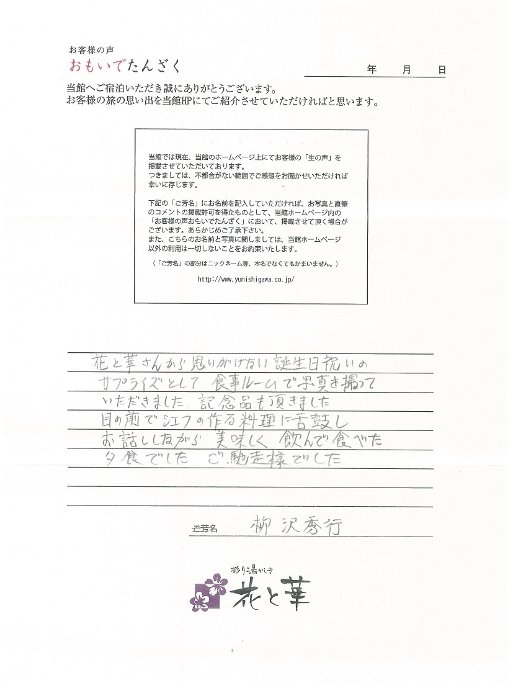 お客様の声
おもいでたんざく
年 月 日
当館へご宿泊いただき誠にありがとうございます。
お客様の旅の思い出を当館HPにてご紹介させていただければと思います。
当館では現在、当館のホームページ上にてお客様の「生の声」を
掲載させていただいております。
つきましては、不都合がない範囲でご感想をお聞かせいただければ
幸いに存じます。
下記の「ご芳名」にお名前を記入していただければ、お写真と直筆
のコメントの掲載許可を得たものとして、当館ホームページ内の
「お客様の声おもいでたんざく」において、掲載させて頂く場合が
ございます。あらかじめご了承下さい。
また、こちらのお名前と写真に関しましては、当館ホームページ
以外の利用は一切しないことをお約束いたします。
(「ご芳名」の部分はニックネーム等、本名でなくてもかまいません。)
http://www.yunishigawa.co.jp/
花と華さんから思いがけない誕生日祝いの
サプライズとして 食事ルームで写真を撮って
いただきました 記念品も頂きました
目の前でシェフの作る料理に舌鼓し
お話ししながら 美味しく 飲んで食べた
夕食でした ご馳走様でした
ご芳名 柳沢秀行
彩り湯かしき
花と華